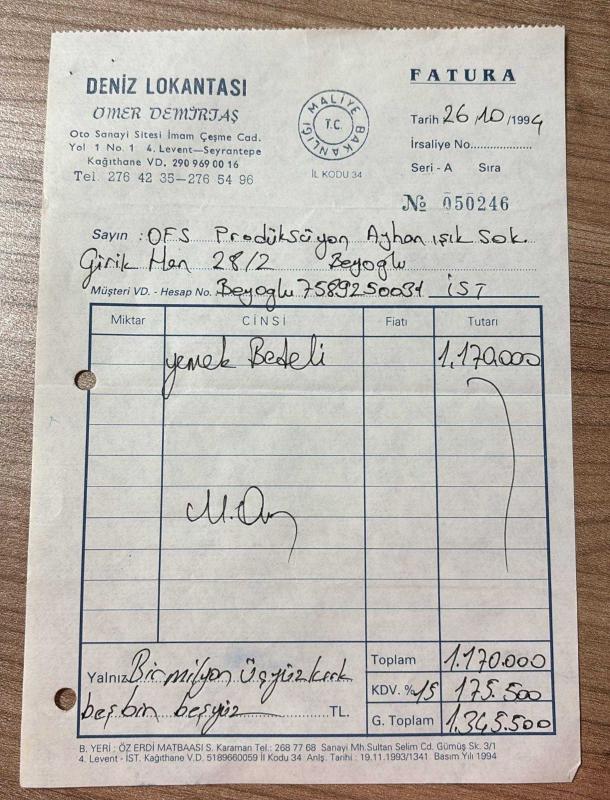 DENİZ LOKANTASI
ÖMER DEMİRTAŞ
Oto Sanayi Sitesi İmam Çeşme Cad.
Yol 1 No. 1 4. Levent—Seyrantepe
Kağıthane VD. 290 969 00 16
Tel. 276 42 35—276 54 96
T.C. MALİYE BAKANLIĞI
İL KODU 34
FATURA
Tarih 26/10/1994
İrsaliye No...................
Seri - A Sıra
№ 050246
Sayın : OFS Prodüksüyon Ayhan ışık Sok.
Girik Han 28/2 Beyoglu
Müşteri VD. - Hesap No. Beyoglu 7589250031 İST
Miktar CİNSİ Fiatı Tutarı
yemek Bedeli 1.170.000
Toplam 1.170.000
Yalnız Birmilyon Üçyüzkırk
KDV. %15 175.500
beşbin beşyüz TL.
G. Toplam 1.345.500
B. YERİ : ÖZ ERDİ MATBAASI S. Karaman Tel.: 268 77 68 Sanayi Mh.Sultan Selim Cd. Gümüş Sk. 3/1
4. Levent - İST. Kağıthane V.D. 5189660059 İl Kodu 34 Anlş. Tarihi : 19.11.1993/1341 Basım Yılı 1994